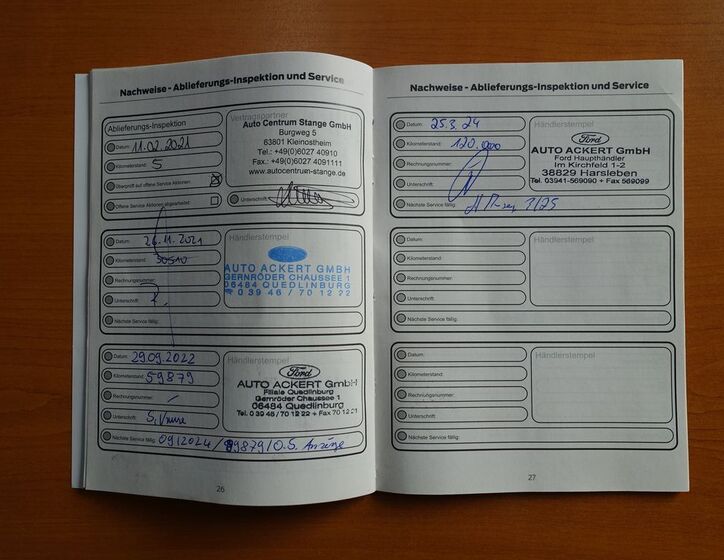 Nachweise - Ablieferungs-Inspektion und Service
Ablieferungs-Inspektion
Datum: 11.02.2021
Kilometerstand: 5
Überprüft auf offene Service Aktionen
Offene Service Aktionen abgearbeitet
Vertragspartner
Auto Centrum Stange GmbH
Burgweg 5
63801 Kleinostheim
Tel.: +49(0)6027 40910
Fax.: +49(0)6027 4091111
www.autocentrum-stange.de
Unterschrift:
Datum: 26.11.2021
Kilometerstand: 30510
Rechnungsnummer:
Unterschrift:
Nächste Service fällig:
Händlerstempel
AUTO ACKERT GMBH
GERNRÖDER CHAUSSEE 1
06484 QUEDLINBURG
0 39 46 / 70 12 22
Datum: 29.09.2022
Kilometerstand: 59879
Rechnungsnummer:
Unterschrift:
Nächste Service fällig: 09/2024 / 89879/O.S. Anzeige
Händlerstempel
Ford
AUTO ACKERT GmbH
Filiale Quedlinburg
Gernröder Chaussee 1
06484 Quedlinburg
Tel. 0 39 46 / 70 12 22 + Fax 70 12 21
26
Nachweise - Ablieferungs-Inspektion und Service
Datum: 25.3.24
Kilometerstand: 120.000
Rechnungsnummer:
Unterschrift:
Nächste Service fällig: 3/25
Händlerstempel
Ford
AUTO ACKERT GmbH
Ford Haupthändler
Im Kirchfeld 1-2
38829 Harsleben
Tel. 03941-569090 + Fax 569099
Datum:
Kilometerstand:
Rechnungsnummer:
Unterschrift:
Nächste Service fällig:
Händlerstempel
Datum:
Kilometerstand:
Rechnungsnummer:
Unterschrift:
Nächste Service fällig:
Händlerstempel
27